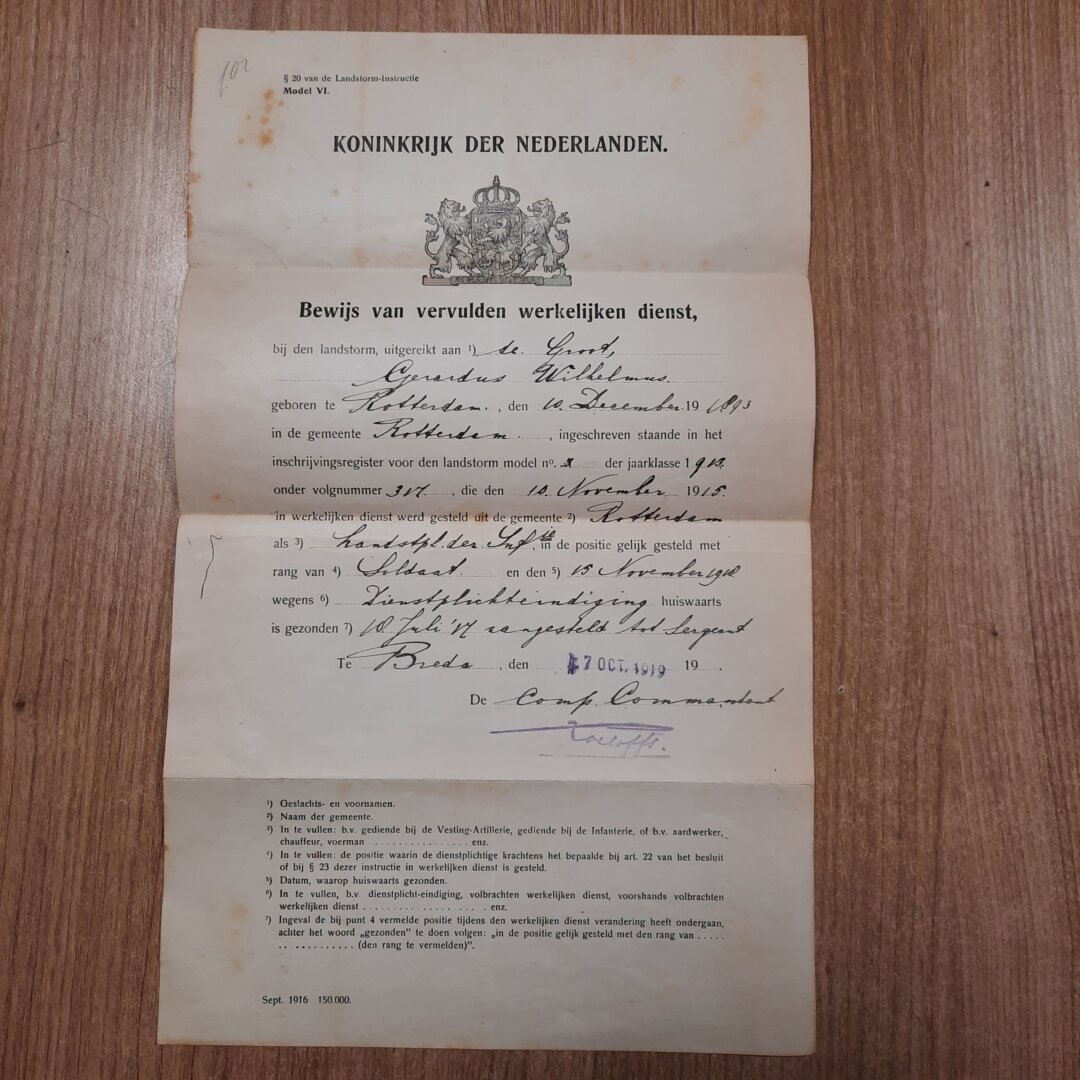 § 20 van de Landstorm-Instructie
Model VI.
KONINKRIJK DER NEDERLANDEN.
Bewijs van vervulden werkelijken dienst,
bij den landstorm, uitgereikt aan ¹) de Groot,
Gerardus Wilhelmus.
geboren te Rotterdam., den 10 December 19 1893
in de gemeente Rotterdam., ingeschreven staande in het
inschrijvingsregister voor den landstorm model no. der jaarklasse 1913.
onder volgnummer 317., die den 10 November 1915.
in werkelijken dienst werd gesteld uit de gemeente ²) Rotterdam
als ³) Landstpl. der Inf ie, in de positie gelijk gesteld met
rang van ⁴) Soldaat. en den ⁵) 15 November 1918
wegens ⁶) Dienstplichteindiging huiswaarts
is gezonden ⁷) 18 Juli '17 aangesteld tot Sergeant
Te Breda, den 7 OCT. 1919 19
De Comp. Commandant
¹) Geslachts- en voornamen.
²) Naam der gemeente.
³) In te vullen: b.v. gediende bij de Vesting-Artillerie, gediende bij de Infanterie, of b.v. aardwerker,
chauffeur, voerman . . . . . . . . . . . . . . . . enz.
⁴) In te vullen: de positie waarin de dienstplichtige krachtens het bepaalde bij art. 22 van het besluit
of bij § 23 dezer instructie in werkelijken dienst is gesteld.
⁵) Datum, waarop huiswaarts gezonden.
⁶) In te vullen, b.v. dienstplicht-eindiging, volbrachten werkelijken dienst, voorshands volbrachten
werkelijken dienst . . . . . . . . . . . . . . . . . . . enz.
⁷) Ingeval de bij punt 4 vermelde positie tijdens den werkelijken dienst verandering heeft ondergaan,
achter het woord „gezonden” te doen volgen: „in de positie gelijk gesteld met den rang van . . . . .
. . . . . . . . . . . . (den rang te vermelden)”.
Sept. 1916 150.000.